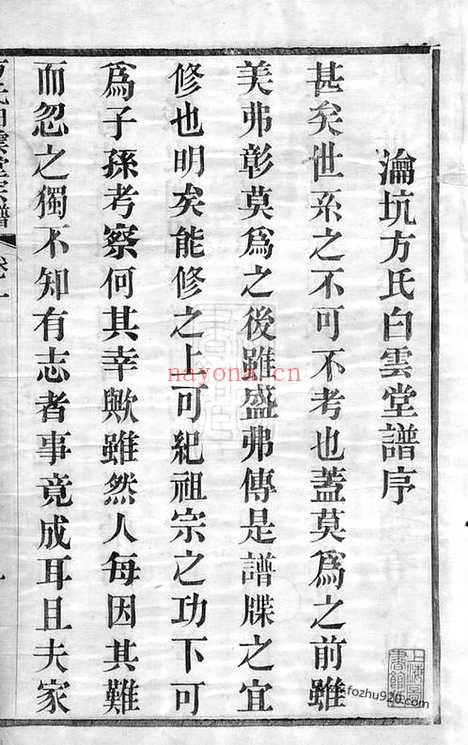 瀹坑方氏白雲堂譜序
甚矣世系之不可不考也蓋莫爲之前雖
美弗彰莫爲之後雖盛弗傳是譜牒之宜
修也明矣能修之上可紀祖宗之功下可
爲子孫考察何其幸歟雖然人每因其難
而忽之獨不知有志者事竟成耳且夫家
方氏白雲堂宗譜
卷一
nayona.cn
fozhu920.com